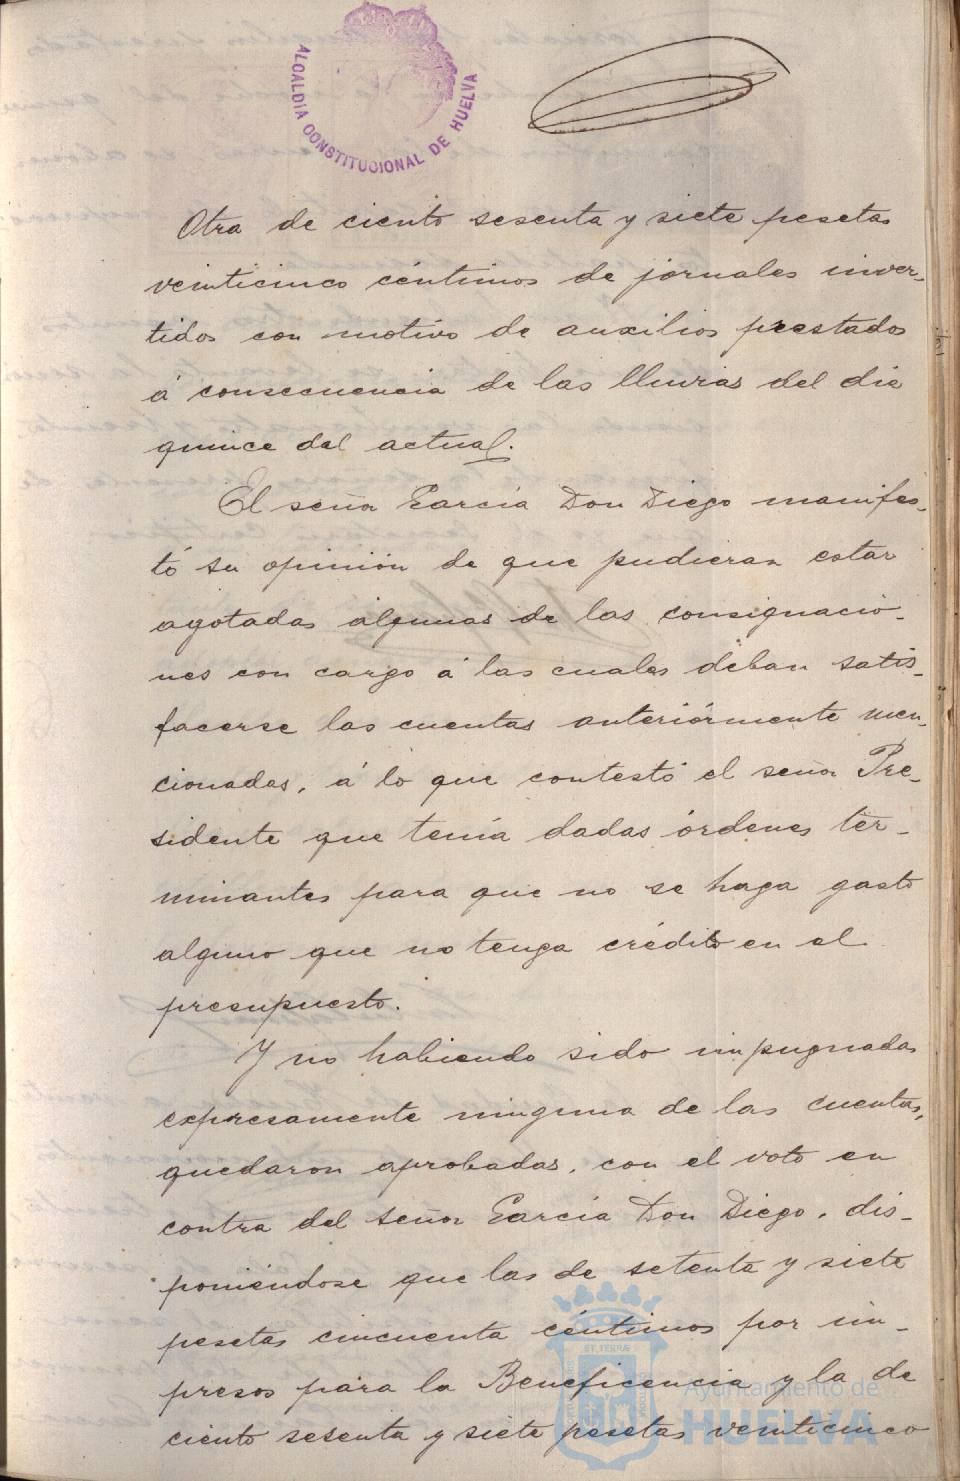 ALCALDIA CONSTITUCIONAL DE HUELVA
Otra de ciento sesenta y siete pesetas
veinticinco céntimos de jornales inver-
tidos con motivo de auxilios prestados
á consecuencia de las lluvias del dia
quince del actual.
El señor García Don Diego manifes-
tó su opinión de que pudieran estar
agotadas algunas de las consignacio-
nes con cargo á las cuales deban satis-
facerse las cuentas anteriórmente men-
cionadas, á lo que contestó el señor Pre-
sidente que tenía dadas órdenes tér-
minantes para que no se haga gasto
alguno que no tenga crédito en el
presupuesto.
Y no habiendo sido impugnadas
expresamente ninguna de las cuentas,
quedaron aprobadas, con el voto en
contra del señor García Don Diego, dis-
poniéndose que las de setenta y siete
pesetas cincuenta céntimos por im-
presos para la Beneficencia y la de
ciento sesenta y siete pesetas veinticinco
Ayuntamiento de
HUELVA